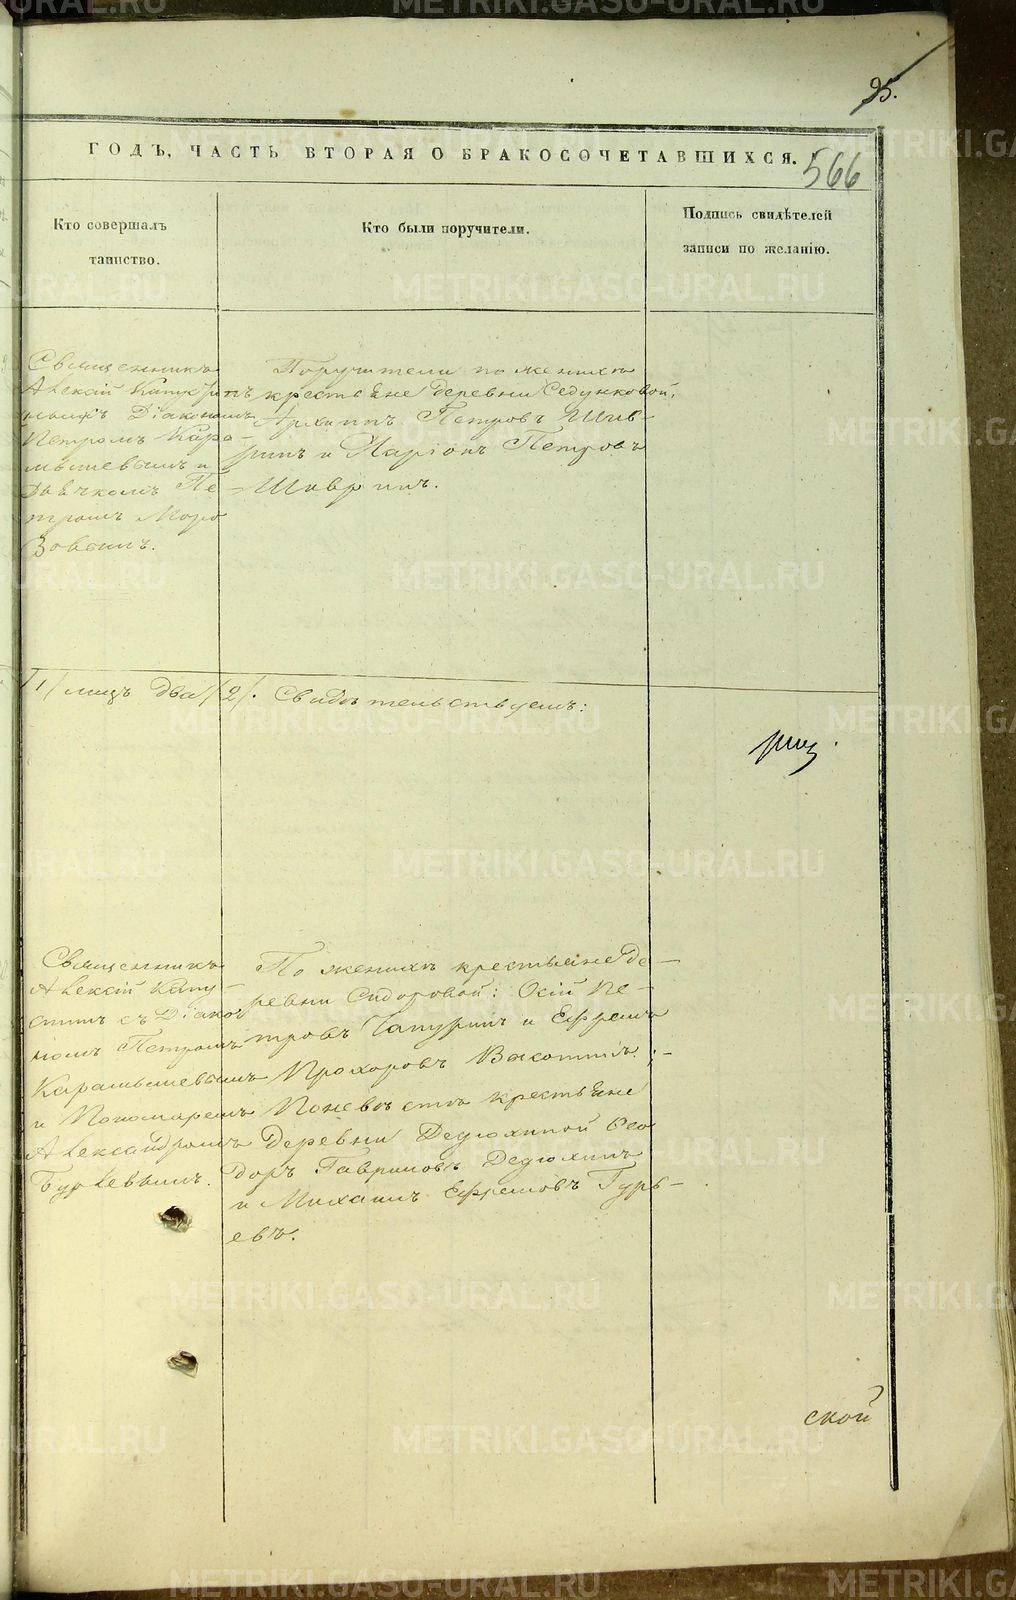 95.
ГОДЪ, ЧАСТЬ ВТОРАЯ О БРАКОСОЧЕТАВШИХСЯ.
566
Кто совершалъ
таинство.
Кто были поручители.
Подпись свидѣтелей
записи по желанію.
Священникъ
Алексій Капустинъ
Діакономъ
Петромъ Кара-
мышевымъ и
Дьячкомъ Пе-
тромъ Моро
зовымъ.
Поручители по женихѣ
крестьяне деревни Седунковой,
Архиппъ Петровъ Шав-
ринъ и Маріонъ Петровъ
Шавринъ.
/1/ лицъ два /2/. Свидѣтельствуемъ:
Священникъ
Алексій Капу-
стинъ съ Діако
номъ Петромъ
Карамышевымъ
и Пономаремъ
Александромъ
Бурлевымъ.
По женихѣ крестьяне де-
ревни Сидоровой: Осій Пе-
тровъ Чапуринъ и Ефремъ
Прохоровъ Вакотинъ;
По невѣстѣ крестьяне
Деревни Дедюхиной Ѳео
доръ Гавриловъ Дедюхинъ
и Михаилъ Ефремовъ Гурь-
евъ.
ской
METRIKI.GASO-URAL.RU